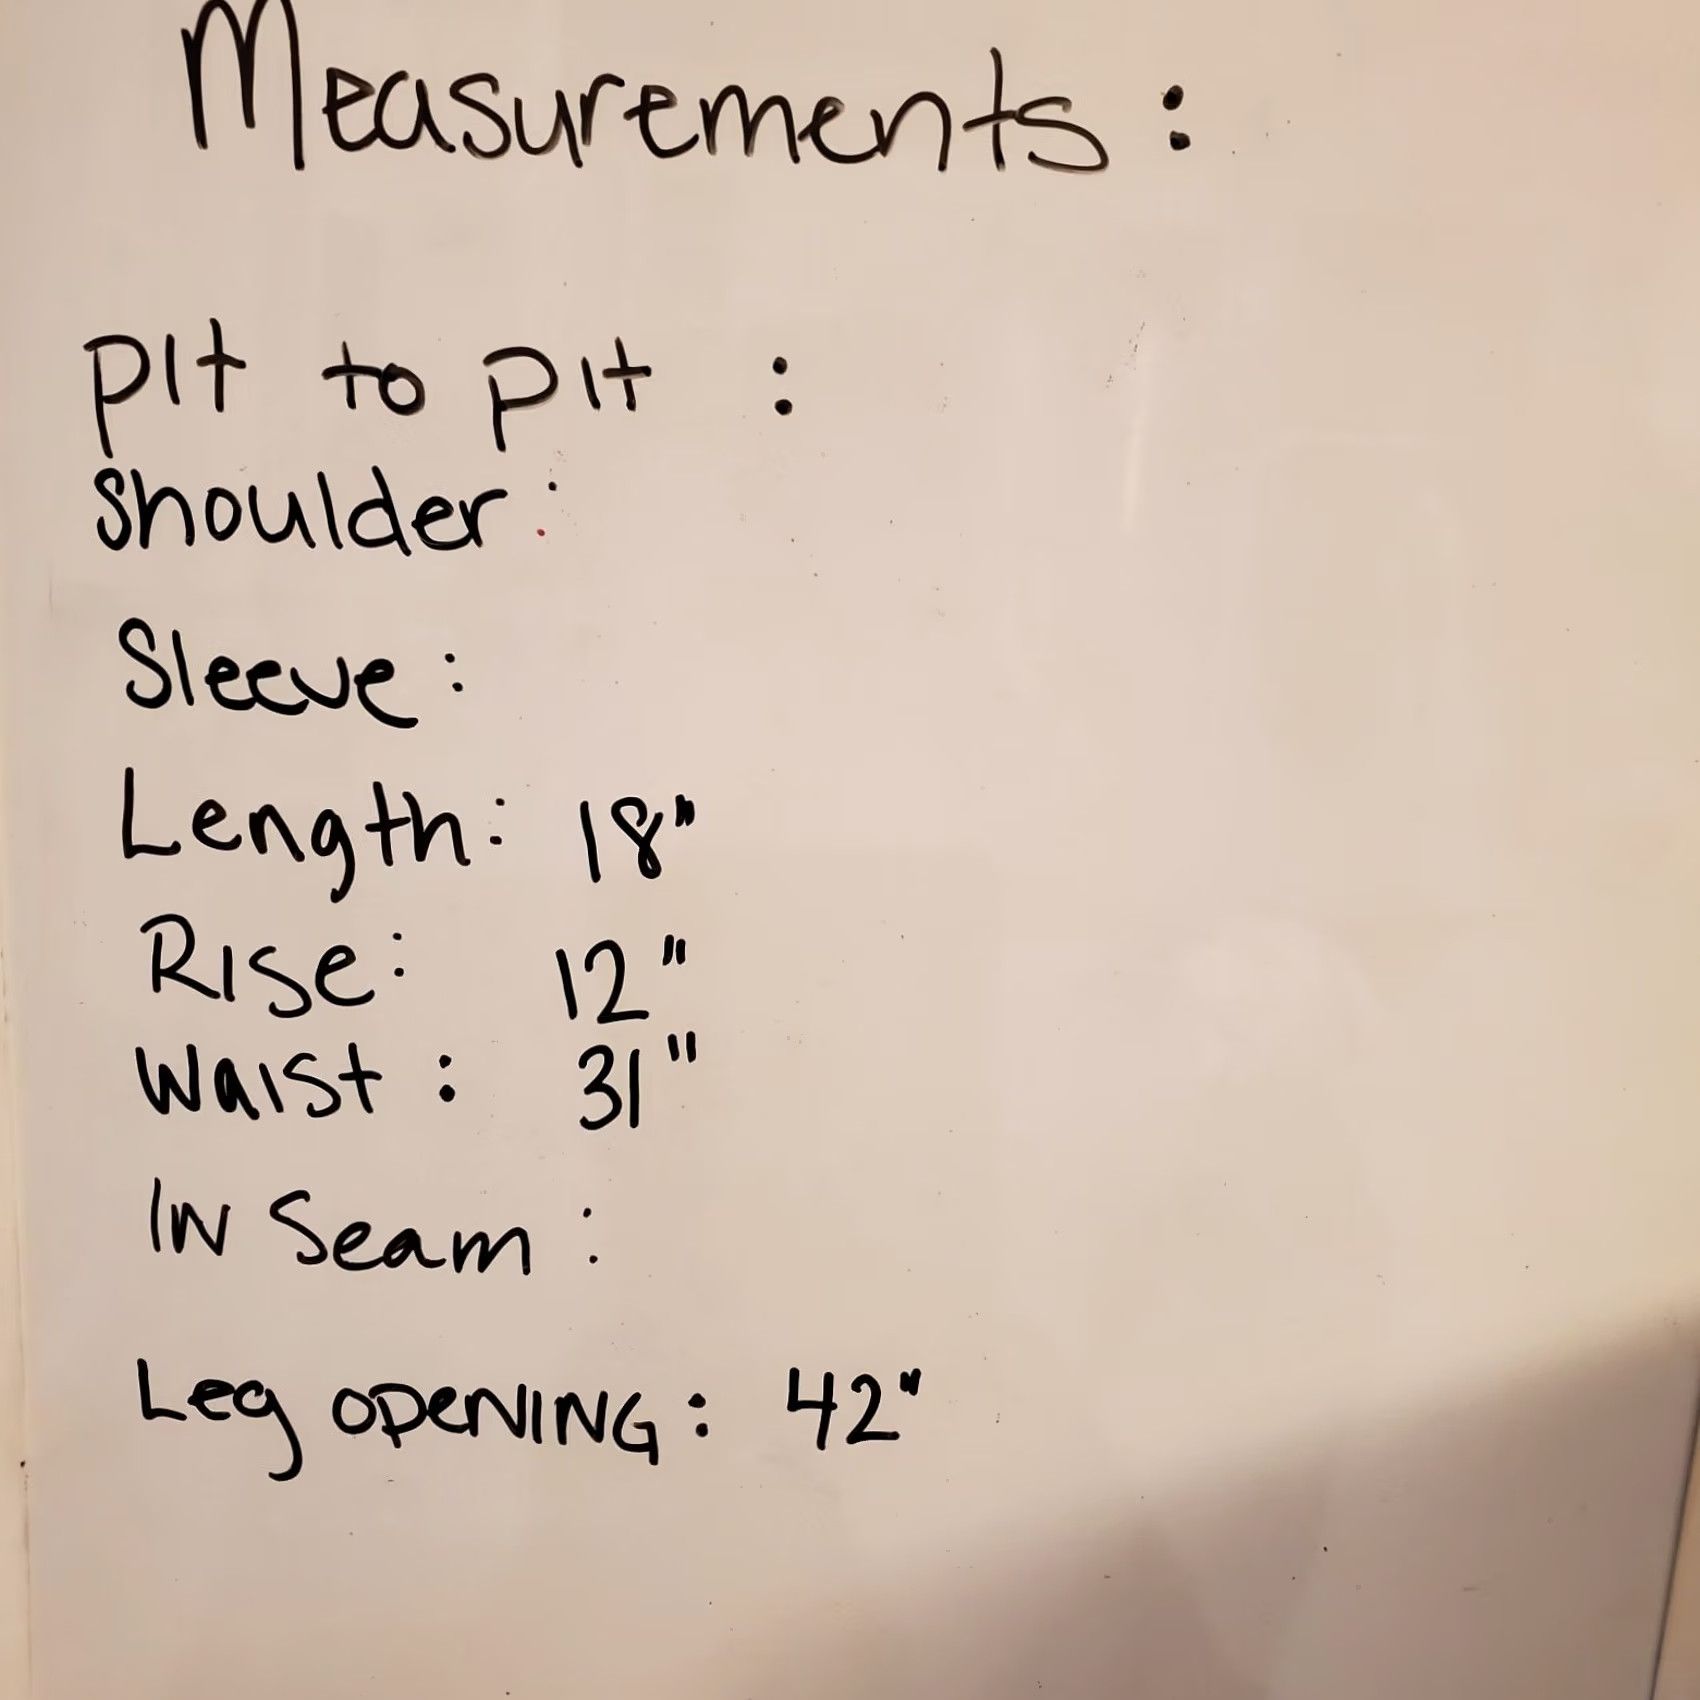 Measurements :
pit to pit :
shoulder :
Sleeve :
Length : 18"
Rise : 12"
Waist : 31"
In Seam :
Leg opening : 42"